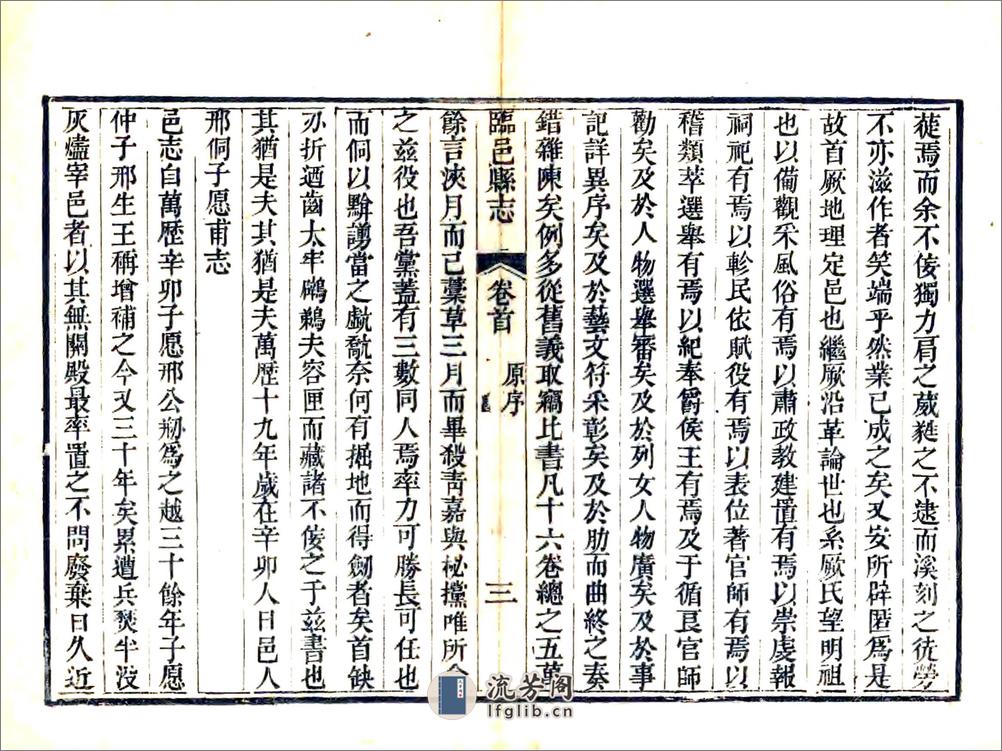 蓰焉而余不佞獨力肩之葳蕤之不逮而溪刻之徒勞
不亦滋作者笑端乎然業已成之矣又安所辟匿爲是
故首厥地理定邑也繼厥沿革論世也系厥氏望明祖
也以備觀采風俗有焉以肅政教建置有焉以崇虔報
祠祀有焉以軫民依賦役有焉以表位著官師有焉以
稽類萃選舉有焉以紀奉爵侯王有焉及于循良官師
勸矣及於人物選舉審矣及於列女人物廣矣及於事
記詳異序矣及於藝文符采彰矣及於肋而曲終之奏
錯雜陳矣例多從舊義取竊比書凡十六卷總之五萬
臨邑縣志
卷首
原序
三
餘言浹月而已藁草三月而畢殺青嘉與秘攩唯所令
之兹役也吾黨蓋有三數同人焉率力可勝長可任也
而侗以黭謭當之歔欷奈何有掘地而得劒者矣首缺
亦折迺齒太牢鵰鵜夫容匣而藏諸不佞之于兹書也
其猶是夫其猶是夫萬歷十九年歲在辛卯人日邑人
邢侗子愿甫志
邑志自萬歷辛卯子愿邢公刱爲之越三十餘年子愿
仲子邢生王稱增補之今又三十年矣累遭兵燹半沒
灰燼宰邑者以其無關殿最率置之不問廢棄日久近
流芳阁
lfglib.cn